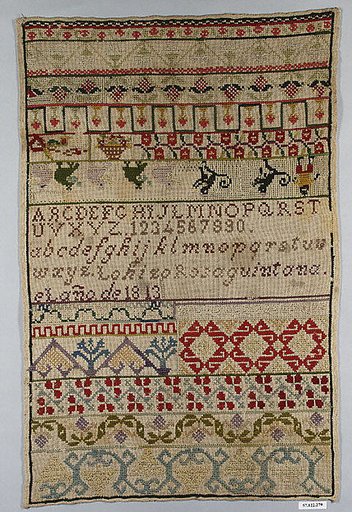 ABCDEFGHIJLMNOPQRST
UVXYZ.1234567890.
abcdefghijklmnopqrstuv
wxyz. Lohizo Rosaquintana.
el año de 1813
57.122.279